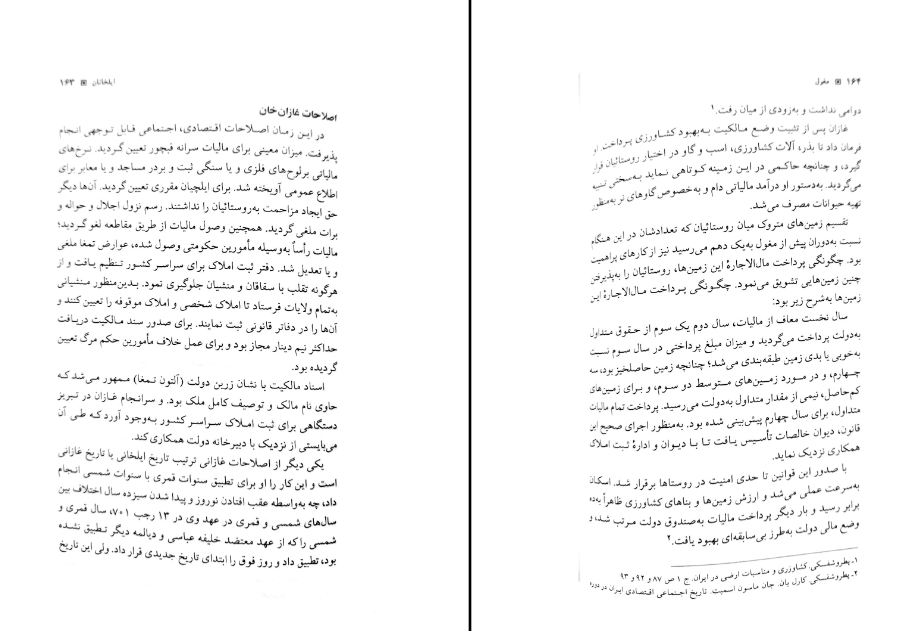 ایلخانان ▣ ۱۶۳
اصلاحات غازان‌خان
در این زمان اصلاحات اقتصادی، اجتماعی قابل توجهی انجام
پذیرفت. میزان معینی برای مالیات سرانه قبچور تعیین گردید. نرخ‌های
مالیاتی برلوح‌های فلزی و یا سنگی ثبت و بردر مساجد و یا معابر برای
اطلاع عمومی آویخته شد. برای ایلچیان مقرری تعیین گردید. آن‌ها دیگر
حق ایجاد مزاحمت به‌روستائیان را نداشتند. رسم نزول اجلال و حواله و
برات ملغی گردید. همچنین وصول مالیات از طریق مقاطعه لغو گردید؛
مالیات رأساً به‌وسیله مأمورین حکومتی وصول شده، عوارض تمغا ملغی
و یا تعدیل شد. دفتر ثبت املاک برای سراسر کشور تنظیم یافت و از
هرگونه تقلب با سفاقان و منشیان جلوگیری نمود. بدین‌منظور منشیانی
به‌تمام ولایات فرستاد تا املاک شخصی و املاک موقوفه را تعیین کنند و
آن‌ها را در دفاتر قانونی ثبت نمایند. برای صدور سند مالکیت دریافت
حداکثر نیم دینار مجاز بود و برای عمل خلاف مأمورین حکم مرگ تعیین
گردیده بود.
اسناد مالکیت با نشان زرین دولت (آلتون تمغا) ممهور می‌شد که
حاوی نام مالک و توصیف کامل ملک بود. و سرانجام غازان در تبریز
دستگاهی برای ثبت املاک سراسر کشور به‌وجود آورد که طی آن
می‌بایستی از نزدیک با دبیرخانه دولت همکاری کند.
یکی دیگر از اصلاحات غازانی ترتیب تاریخ ایلخانی یا تاریخ غازانی
است و این کار را او برای تطبیق سنوات قمری با سنوات شمسی انجام
داد، چه به‌واسطه عقب افتادن نوروز و پیدا شدن سیزده سال اختلاف بین
سال‌های شمسی و قمری در عهد وی در ۱۳ رجب ۷۰۱، سال قمری و
شمسی را که از عهد معتضد خلیفه عباسی و دیالمه دیگر تطبیق نشده
بود، تطبیق داد و روز فوق را ابتدای تاریخ جدیدی قرار داد. ولی این تاریخ
۱۶۴ ▣ مغول
دوامی نداشت و به‌زودی از میان رفت.۱
غازان پس از تثبیت وضع مالکیت به‌بهبود کشاورزی پرداخت. او
فرمان داد تا بذر، آلات کشاورزی، اسب و گاو در اختیار روستائیان قرار
گیرد، و چنانچه حاکمی در این زمینه کوتاهی نماید به‌سختی تنبیه
می‌گردید. به‌دستور او درآمد مالیاتی دام و به‌خصوص گاوهای نر به‌منظور
تهیه حیوانات مصرف می‌شد.
تقسیم زمین‌های متروک میان روستائیان که تعدادشان در این هنگام
نسبت به‌دوران پیش از مغول به‌یک دهم می‌رسید نیز از کارهای پراهمیت
بود. چگونگی پرداخت مال‌الاجارهٔ این زمین‌ها، روستائیان را به‌پذیرفتن
چنین زمین‌هایی تشویق می‌نمود. چگونگی پرداخت مال‌الاجارهٔ این
زمین‌ها به‌شرح زیر بود:
سال نخست معاف از مالیات، سال دوم یک سوم از حقوق متداول
به‌دولت پرداخت می‌گردید و میزان مبلغ پرداختی در سال سوم نسبت
به‌خوبی یا بدی زمین طبقه‌بندی می‌شد؛ چنانچه زمین حاصلخیز بود، سه
چهارم، و در مورد زمین‌های متوسط دو سوم، و برای زمین‌های
کم‌حاصل، نیمی از مقدار متداول به‌دولت می‌رسید. پرداخت تمام مالیات
متداول، برای سال چهارم پیش‌بینی شده بود. به‌منظور اجرای صحیح این
قانون، دیوان خالصات تأسیس یافت تا با دیوان و ادارهٔ ثبت املاک
همکاری نزدیک نماید.
با صدور این قوانین تا حدی امنیت در روستاها برقرار شد. اسکان
به‌سرعت عملی می‌شد و ارزش زمین‌ها و بناهای کشاورزی ظاهراً به‌ده
برابر رسید و بار دیگر پرداخت مالیات به‌صندوق دولت مرتب شد، و
وضع مالی دولت به‌طرز بی‌سابقه‌ای بهبود یافت.۲
۱ـ پطروشفسکی. کشاورزی و مناسبات ارضی در ایران. ج ۱ ص ۸۷ و ۹۲ و ۹۳
۲ـ پطروشفسکی. کارل یان. جان ماسون اسمیت. تاریخ اجتماعی اقتصادی ایران در دوره